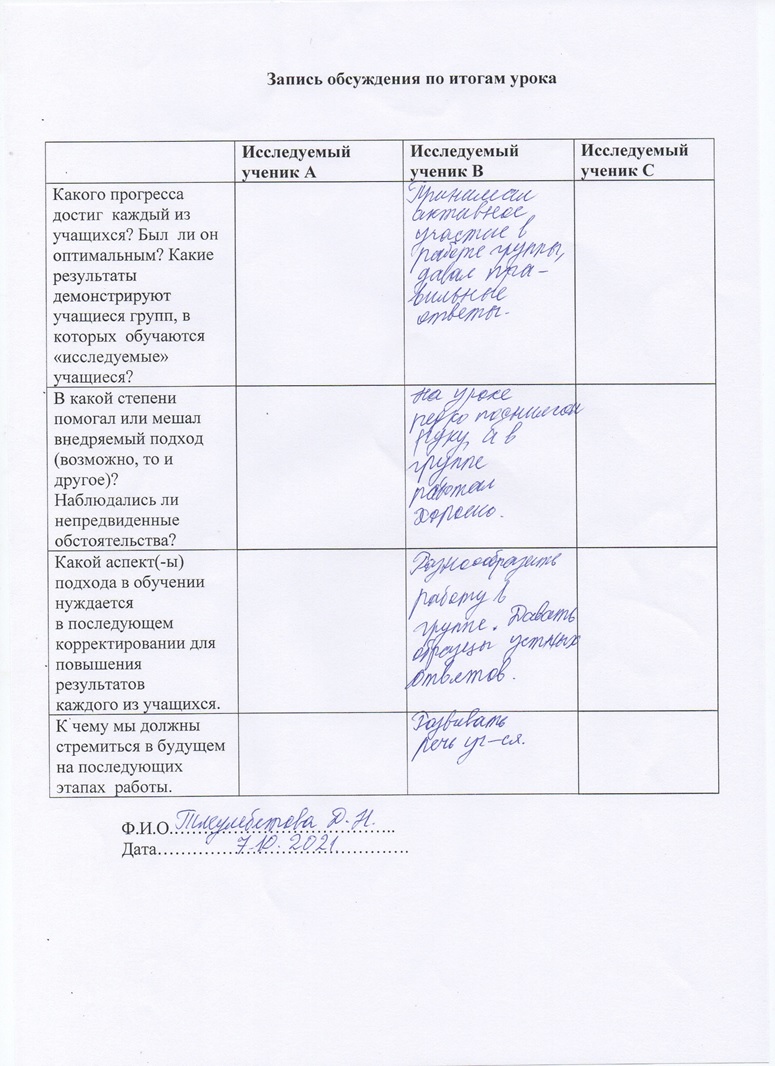 Запись обсуждения по итогам урока
Исследуемый
ученик А
Исследуемый
ученик В
Исследуемый
ученик С
Какого прогресса
достиг каждый из
учащихся? Был ли он
оптимальным? Какие
результаты
демонстрируют
учащиеся групп, в
которых обучаются
«исследуемые»
учащиеся?
Принимал
активное
участие в
работе группы,
давал пра-
вильные
ответы.
В какой степени
помогал или мешал
внедряемый подход
(возможно, то и
другое)?
Наблюдались ли
непредвиденные
обстоятельства?
На уроке
редко поднимал
руку, а в
группе
работал
хорошо.
Какой аспект(-ы)
подхода в обучении
нуждается
в последующем
корректировании для
повышения
результатов
каждого из учащихся.
Разнообразить
работу в
группе. Давать
образцы устных
ответов.
К чему мы должны
стремиться в будущем
на последующих
этапах работы.
Развивать
речь уч-ся.
Ф.И.О. Тлеулбетова Д. Н.
Дата 7.10.2021